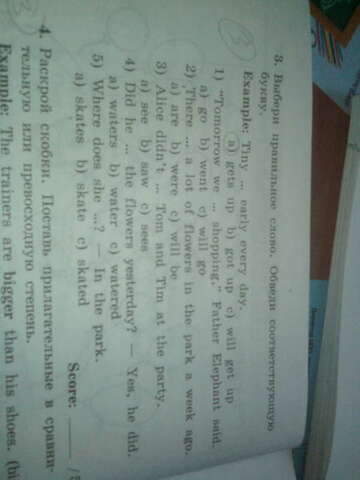 3
3. Выбери правильное слово. Обведи соответствующую
букву.
Example: Tiny ... early every day.
a) gets up b) got up c) will get up
1) "Tomorrow we ... shopping," Father Elephant said.
a) go b) went c) will go
2) There ... a lot of flowers in the park a week ago.
a) are b) were c) will be
3) Alice didn't ... Tom and Tim at the party.
a) see b) saw c) sees
4) Did he ... the flowers yesterday? — Yes, he did.
a) waters b) water c) watered
5) Where does she ...? — In the park.
a) skates b) skate c) skated
Score: ____ /5
4. Раскрой скобки. Поставь прилагательные в сравни-
тельную или превосходную степень.
Example: The trainers are bigger than his shoes. (bi